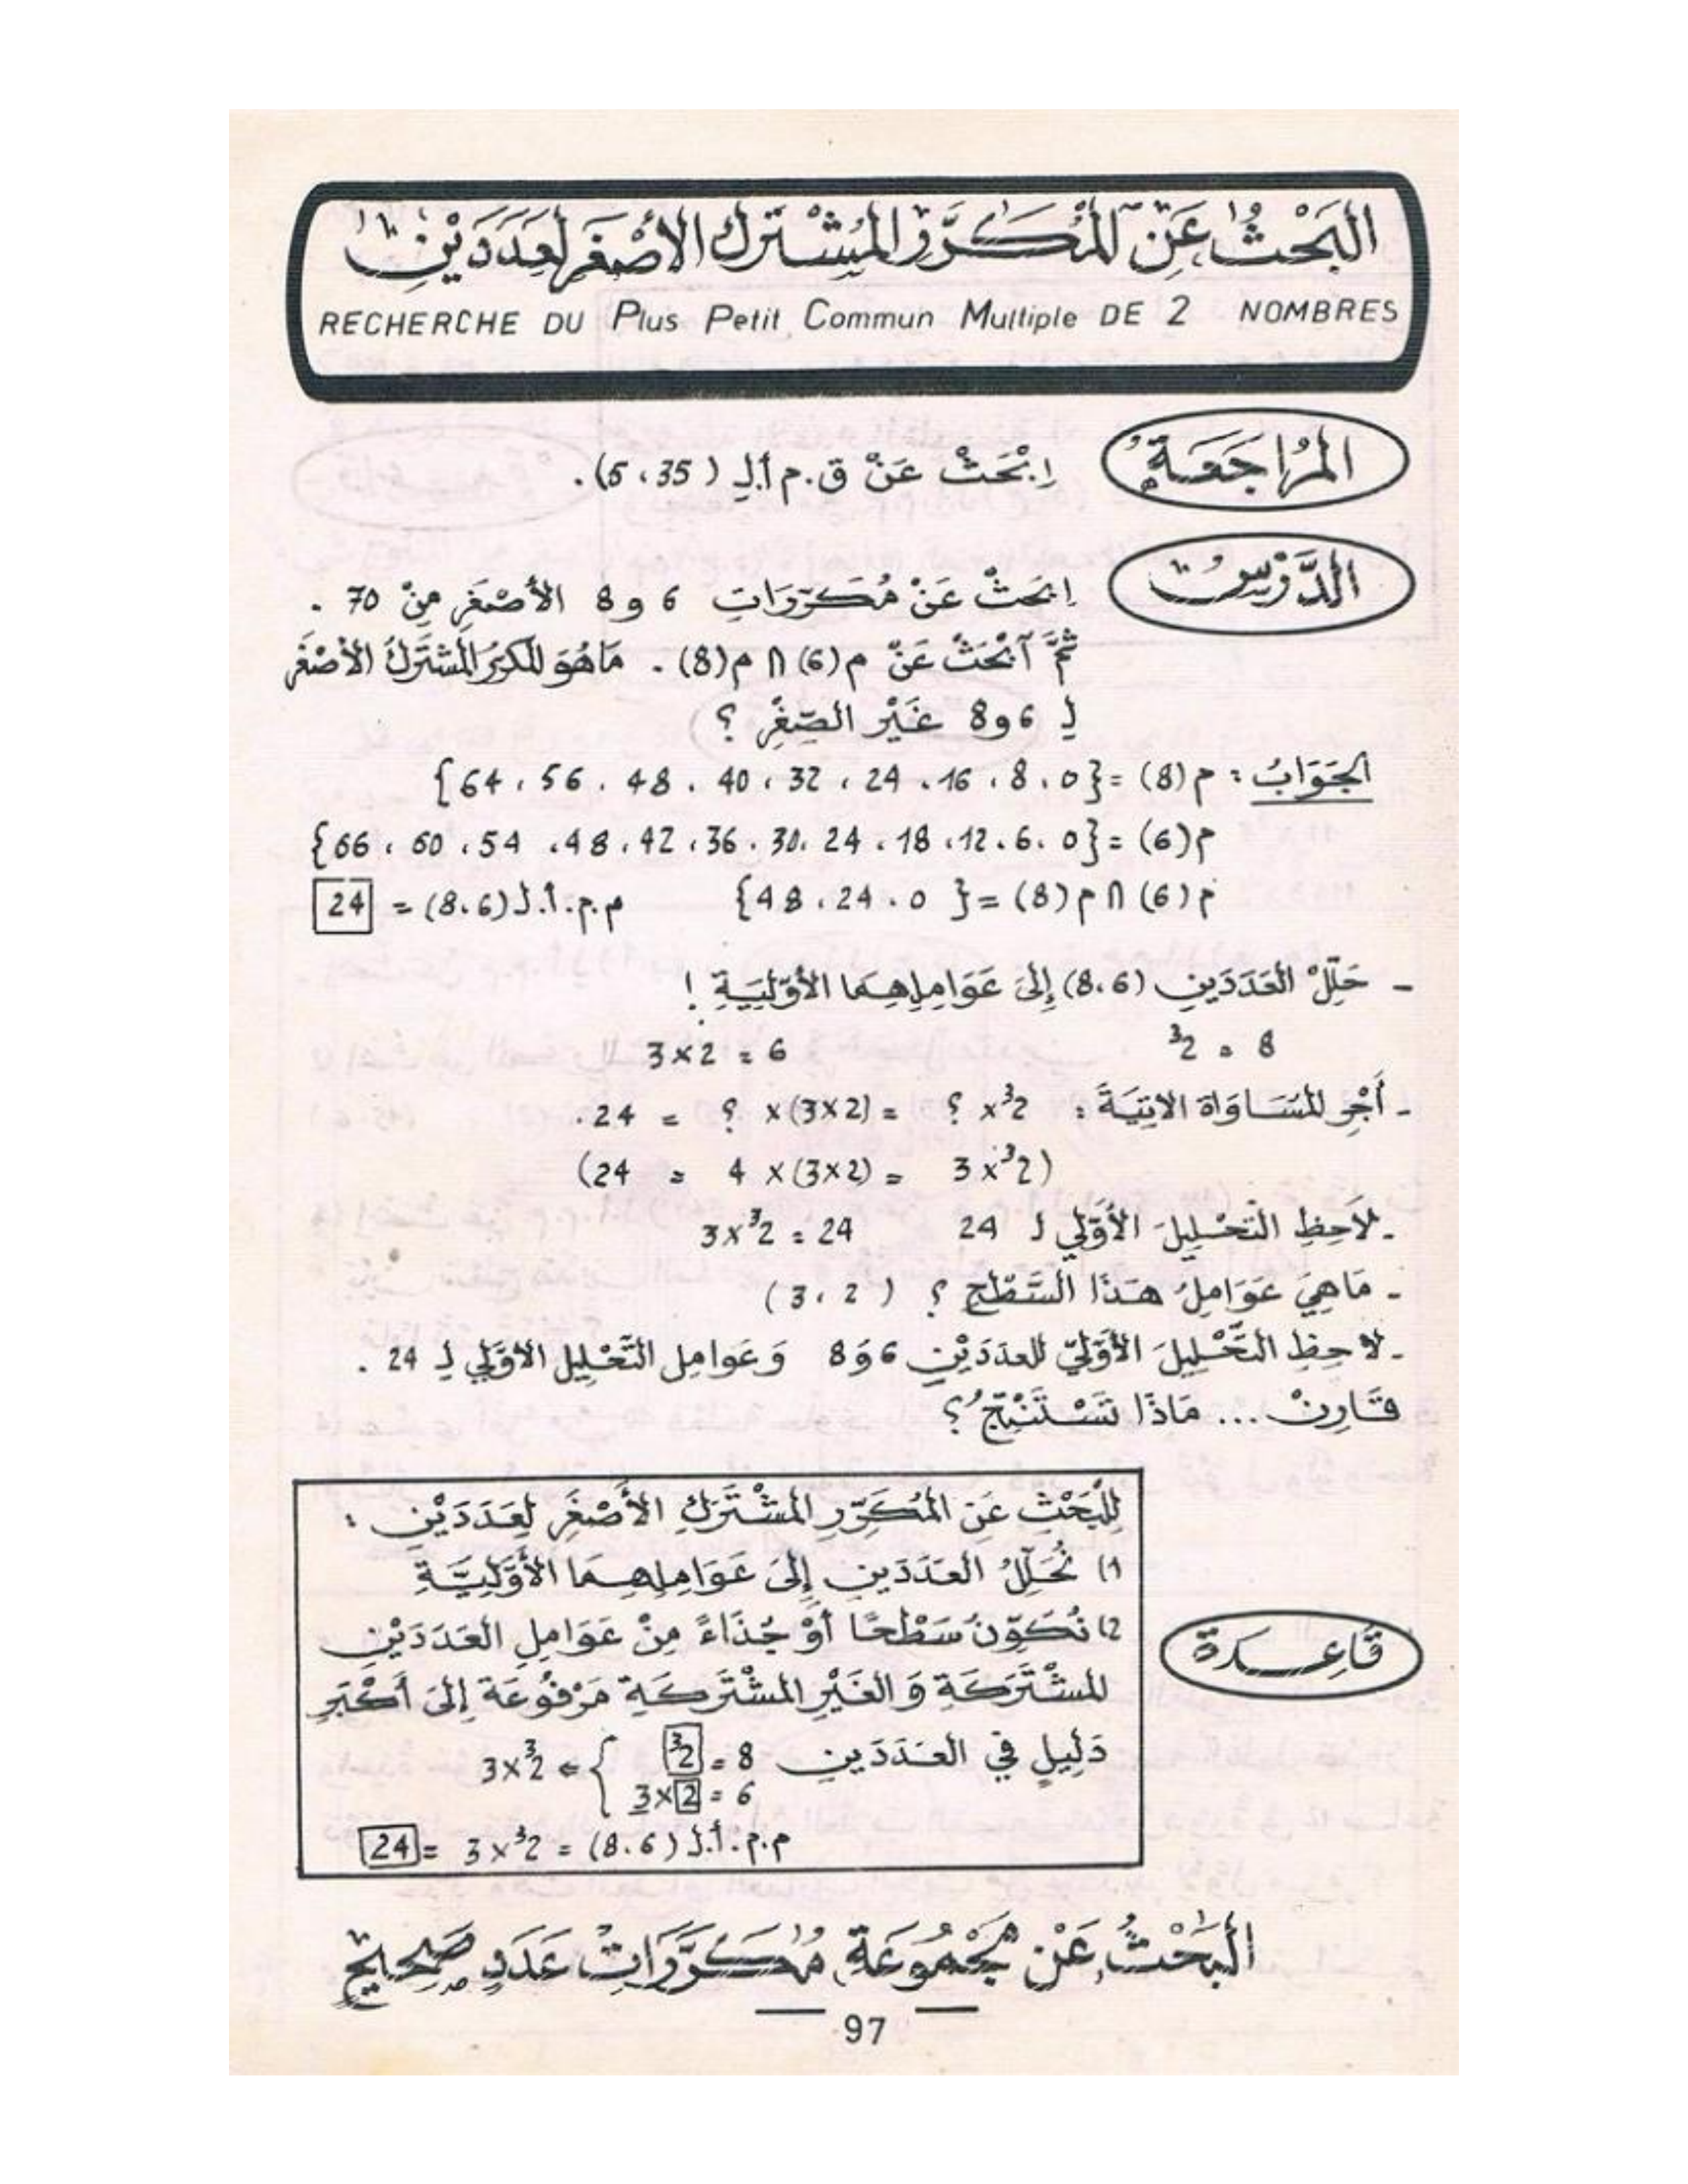 البَحْثُ عَنِ المُكَرَّرِ المُشْتَرَكِ الأَصْغَرِ لِعَدَدَيْنِ
RECHERCHE DU Plus Petit Commun Multiple DE 2 NOMBRES
المُرَاجَعَةُ
اِبْحَثْ عَنْ ق.م.أ.لِ (35، 5).
الدَّرْسُ
اِبْحَثْ عَنْ مُكَرَّرَاتِ 6 و 8 الأَصْغَرِ مِنْ 70 .
ثُمَّ آبْحَثْ عَنْ م(6) ∩ م(8) . مَا هُوَ المُكَرَّرُ المُشْتَرَكُ الأَصْغَرُ
لِـ 6 و 8 غَيْر الصِّفْرِ ؟
الجَوَابُ : م(8) = {0، 8، 16، 24، 32، 40، 48، 56، 64}
م(6) = {0، 6، 12، 18، 24، 30، 36، 42، 48، 54، 60، 66}
م(6) ∩ م(8) = {0، 24، 48} م.م.أ.لـ(8،6) = 24
- حَلِّلْ العَدَدَينِ (8،6) إِلَى عَوَامِلِهِمَا الأَوَّلِيَّةِ !
8 = 2³ 6 = 2×3
- أَجْرِ المُسَاوَاةَ الآتِيَةَ : 2³× ؟ = (2×3)× ؟ = 24.
(2³×3 = (2×3)× 4 = 24)
- لاَحِظِ التَّحْلِيلَ الأَوَّلِي لـ 24 24 = 2³×3
- مَا هِيَ عَوَامِلُ هَذَا السَّطْحِ ؟ (2 ، 3)
- لاَحِظِ التَّحْلِيلَ الأَوَّلِيّ للعدَدَيْنِ 6 وَ 8 وَعَوامِل التَّحْلِيل الأوَّلي لِـ 24 .
قَارِنْ ... مَاذَا تَسْتَنْتِجُ ؟
لِلْبَحْثِ عَنِ المُكَرَّرِ المُشْتَرَكِ الأَصْغَرِ لِعَدَدَيْنِ :
1) نُحَلِّلُ العَدَدَينِ إِلَى عَوَامِلِهِمَا الأَوَّلِيَّةِ
2) نُكَوِّنُ سَطْحًا أَوْ جُذَاءً مِنْ عَوَامِلِ العَدَدَيْنِ
المُشْتَرَكَةِ وَ الغَيْرِ المُشْتَرَكَةِ مَرْفُوعَة إِلَى أَكْبَرِ
دَلِيلٍ فِي العَدَدَينِ 8 = 2³ } ⇐ 2³×3
6 = 2×3
م.م.أ.لـ (8.6) = 2³×3 = 24
قَاعِدَة
البَحْثُ عَنْ مَجْمُوعَةِ مُكَرَّرَاتِ عَدَدٍ صَحِيحٍ
97